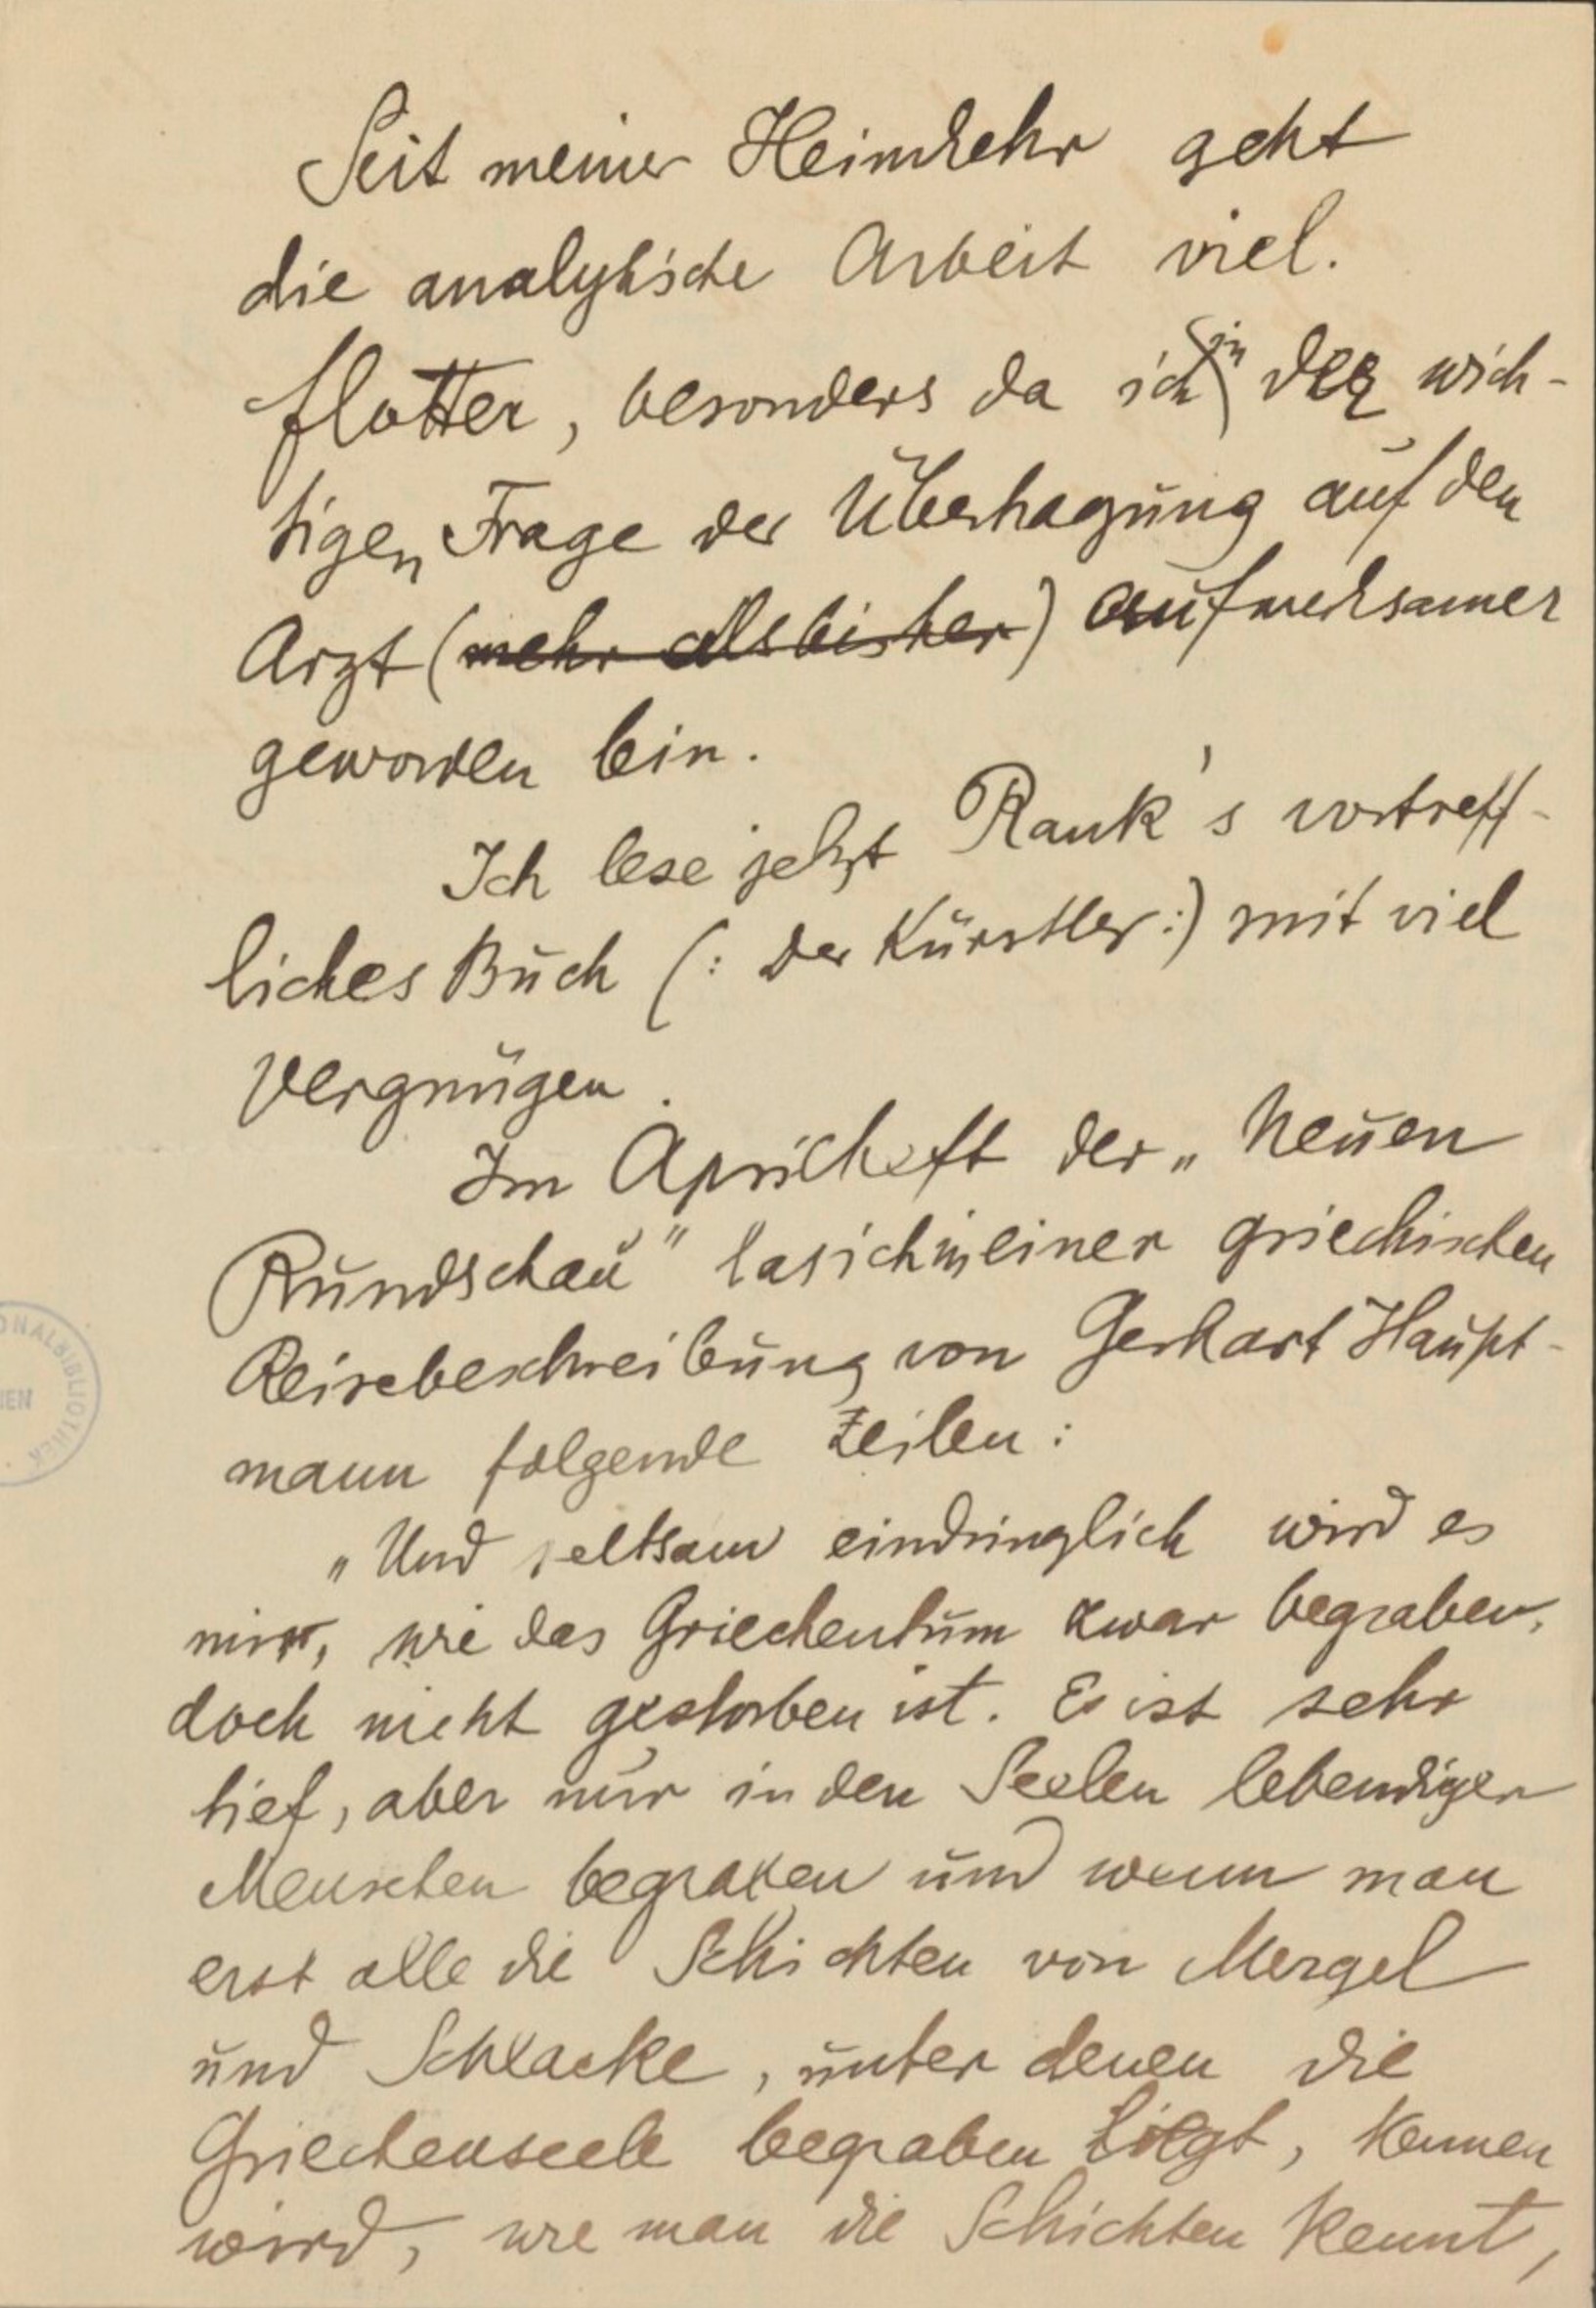 Seit meiner Heimkehr geht
die analytische Arbeit viel.
flotter, besonders da ich in der wich-
tigen Frage der Übertragung auf den
Arzt (mehr als bisher) aufmerksamer
geworden bin.
Ich lese jetzt Rank's vortreff-
liches Buch (: der Künstler :) mit viel
Vergnügen.
Im Aprilheft der „Neuen
Rundschau" las ich in einer griechischen
Reisebeschreibung von Gerhart Haupt-
mann folgende Zeilen:
„Und seltsam eindringlich wird es
mir, wie das Griechentum zwar begraben,
doch nicht gestorben ist. Es ist sehr
tief, aber nur in den Seelen lebendiger
Menschen begraben und wenn man
erst alle die Schichten von Mergel
und Schlacke, unter denen die
Griechenseele begraben liegt, kennen
wird, wie man die Schichten kennt,
ONALBIBLIOTHEK
IEN